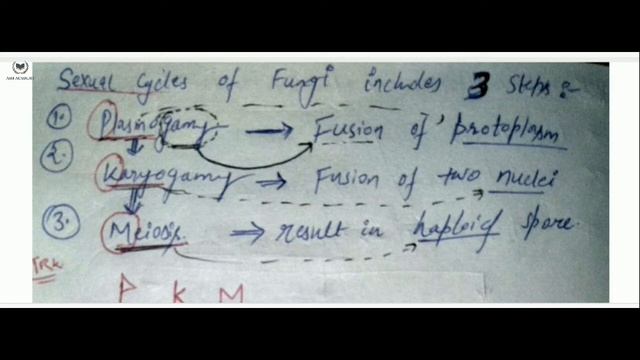 AMI ACADEMY
Sexual Cycles of Fungi includes 3 Steps:-
1. Plasmogamy → Fusion of protoplasm
2. Karyogamy → Fusion of two nuclei
3. Meiosis → result in haploid spore.
TRK
P K M